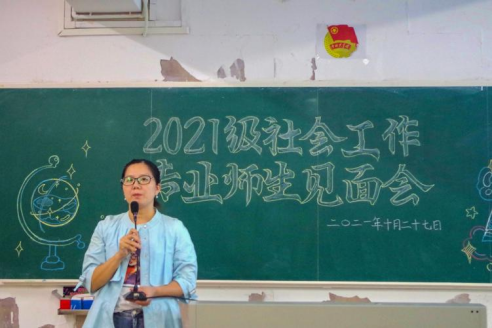 2021级社会工作
专业师生见面会
二〇二一年十月二十七日